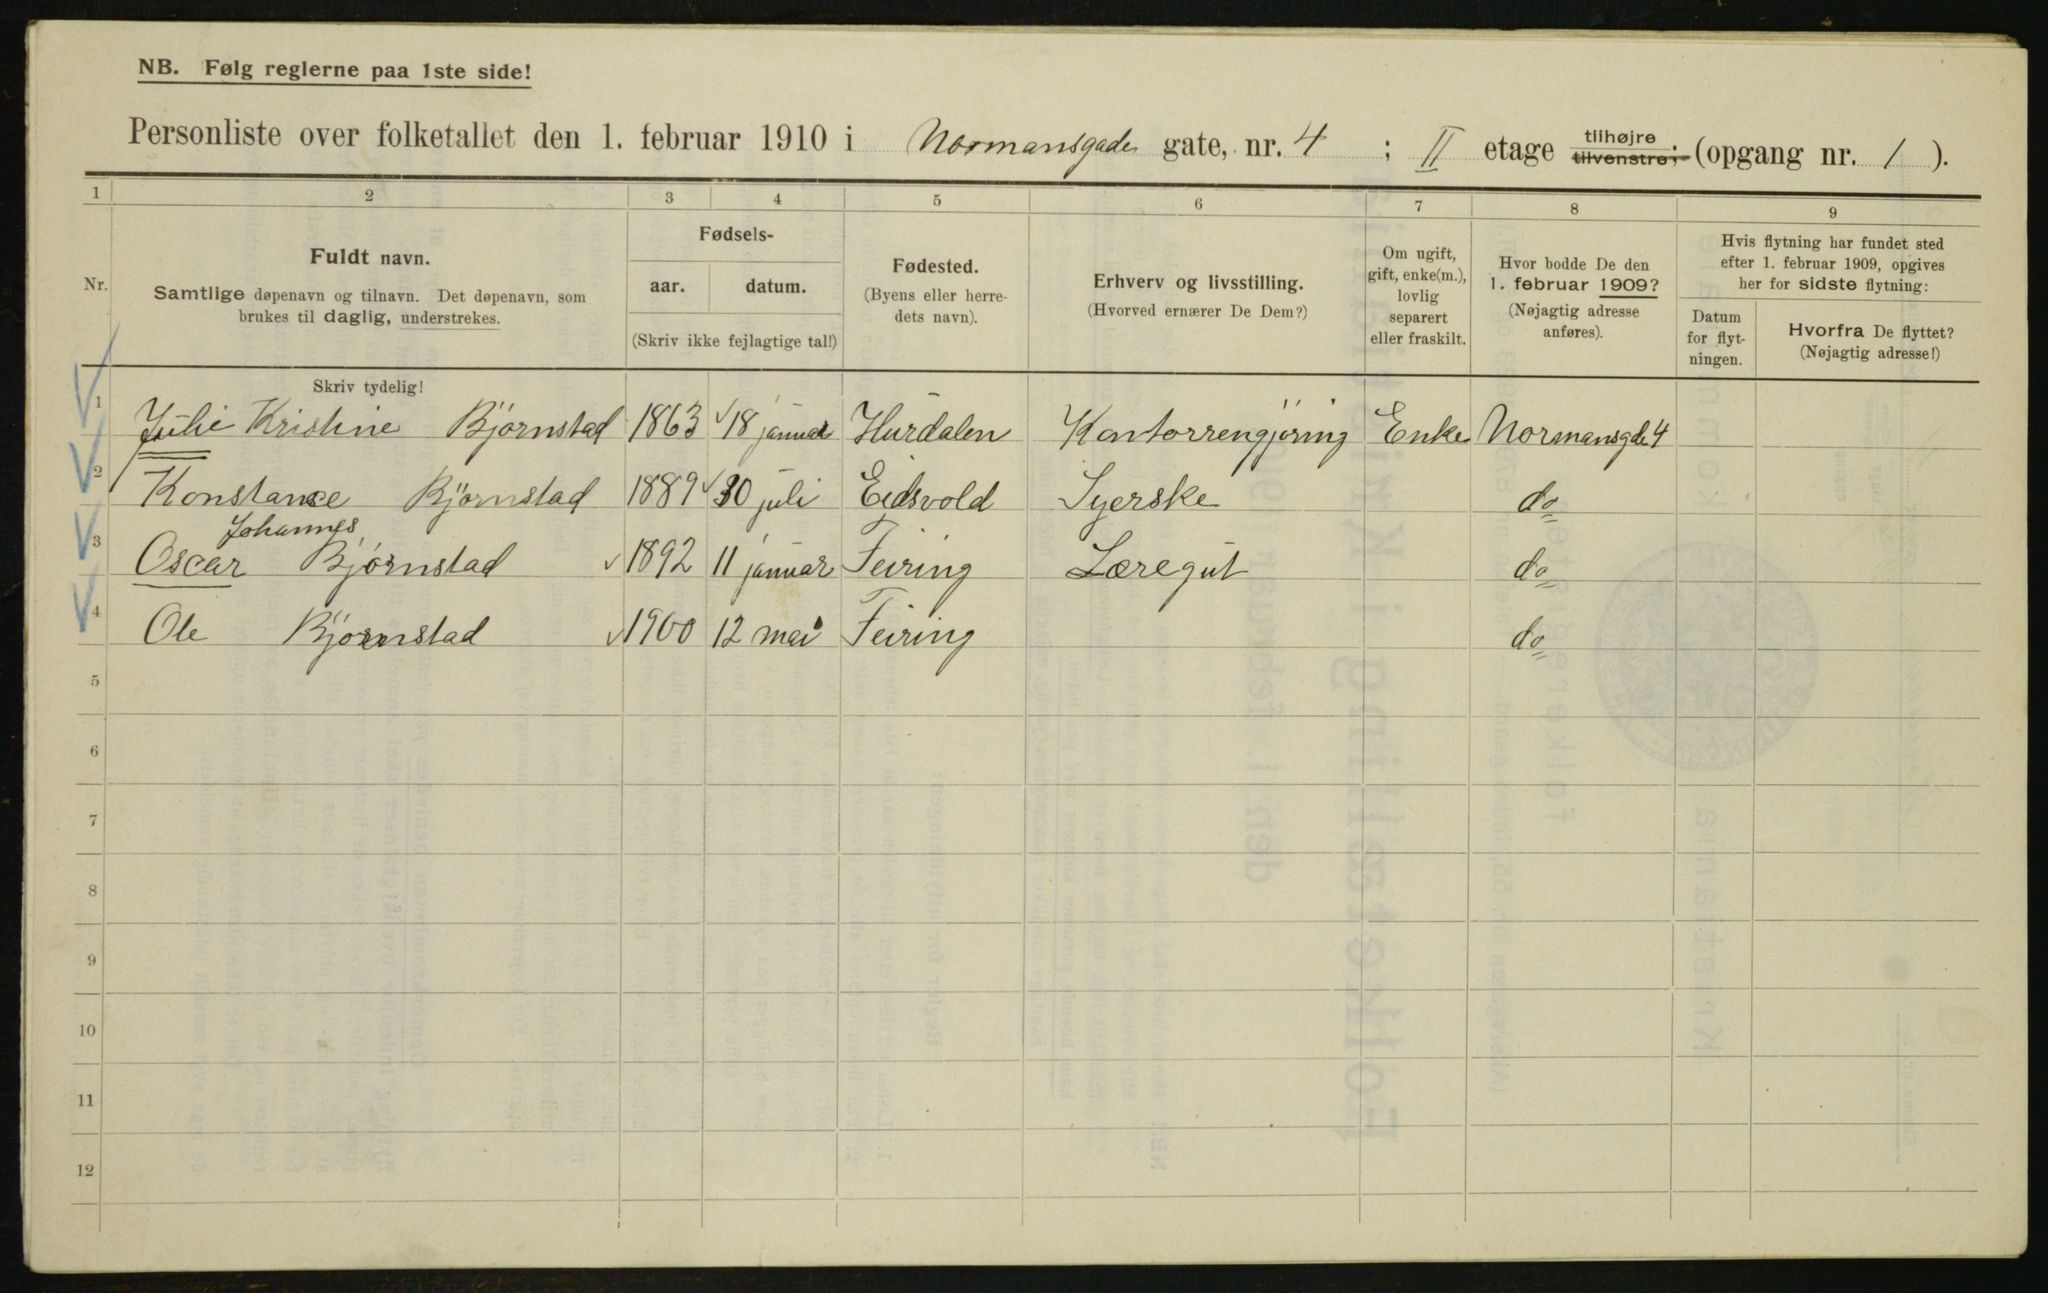 NB. Følg reglerne paa 1ste side!
Personliste over folketallet den 1. februar 1910 i Normansgade gate, nr. 4 ; II etage tilhøjre tilvenstre; (opgang nr. 1 ).
1 2 3 4 5 6 7 8 9
Nr.
Fuldt navn.
Samtlige døpenavn og tilnavn. Det døpenavn, som
brukes til daglig, understrekes.
Skriv tydelig!
Fødsels-
aar. datum.
(Skriv ikke fejlagtige tal!)
Fødested.
(Byens eller herre-
dets navn).
Erhverv og livsstilling.
(Hvorved ernærer De Dem?)
Om ugift,
gift, enke(m.),
lovlig
separert
eller fraskilt.
Hvor bodde De den
1. februar 1909?
(Nøjagtig adresse
anføres).
Hvis flytning har fundet sted
efter 1. februar 1909, opgives
her for sidste flytning:
Datum
for flyt-
ningen.
Hvorfra De flyttet?
(Nøjagtig adresse!)
1 Julie Kristine Bjørnstad 1863 18 januar Hurdalen Kontorrengjøring Enke Normansgde 4
2 Konstanse Bjørnstad 1889 30 juli Eidsvold Syerske do
Johannes
3 Oscar Bjørnstad 1892 11 januar Feiring Læregut do
4 Ole Bjørnstad 1900 12 mai Feiring do
5
6
7
8
9
10
11
12